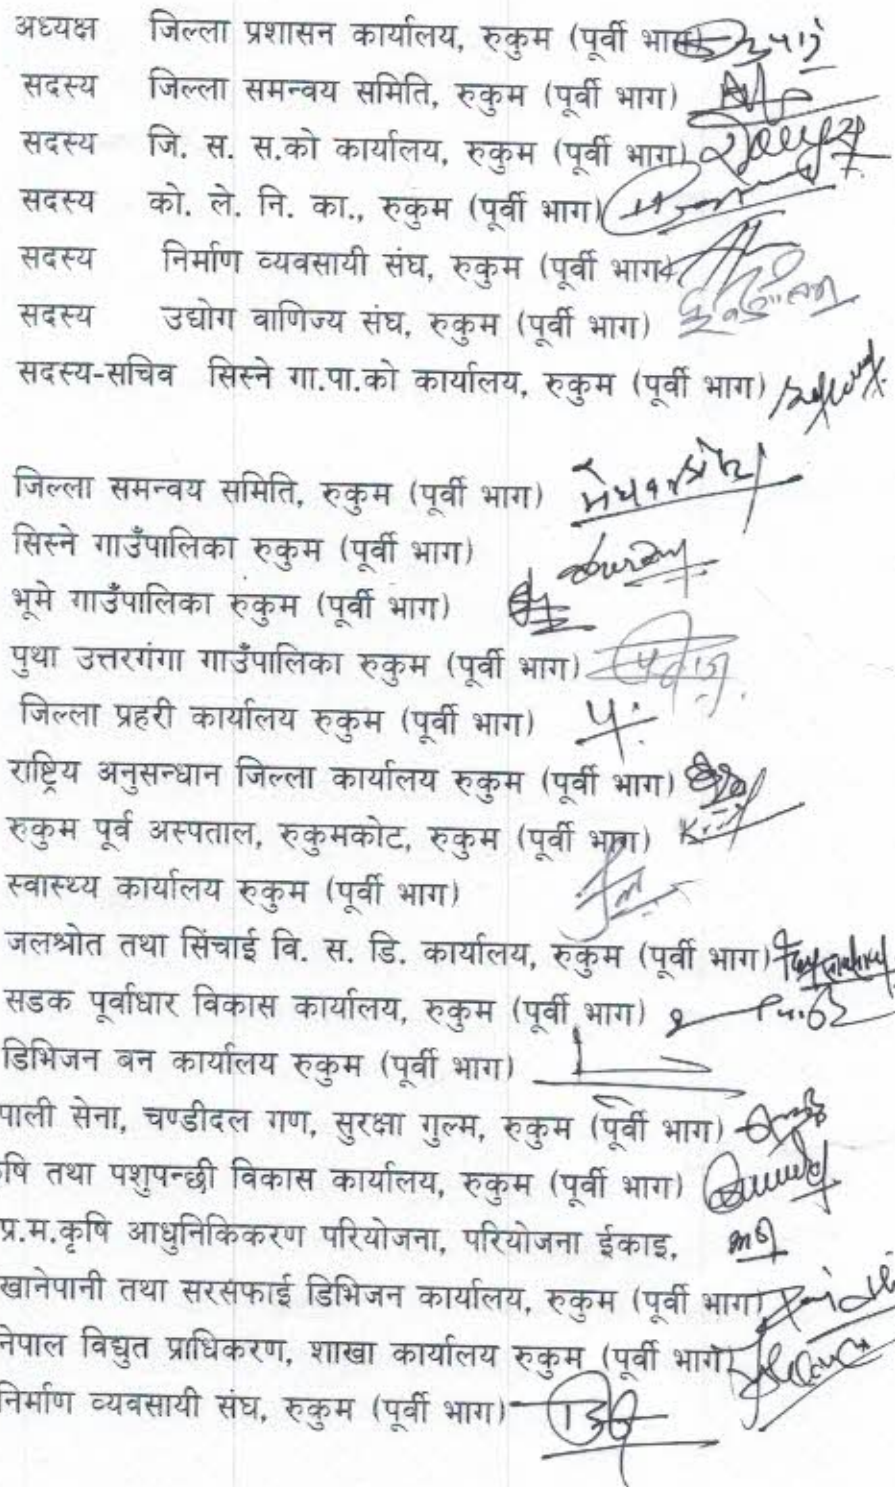 अध्यक्ष जिल्ला प्रशासन कार्यालय, रुकुम (पूर्वी भाग)
सदस्य जिल्ला समन्वय समिति, रुकुम (पूर्वी भाग)
सदस्य जि. स. स.को कार्यालय, रुकुम (पूर्वी भाग)
सदस्य को. ले. नि. का., रुकुम (पूर्वी भाग)
सदस्य निर्माण व्यवसायी संघ, रुकुम (पूर्वी भाग)
सदस्य उद्योग वाणिज्य संघ, रुकुम (पूर्वी भाग)
सदस्य-सचिव सिस्ने गा.पा.को कार्यालय, रुकुम (पूर्वी भाग)
जिल्ला समन्वय समिति, रुकुम (पूर्वी भाग)
सिस्ने गाउँपालिका रुकुम (पूर्वी भाग)
भूमे गाउँपालिका रुकुम (पूर्वी भाग)
पुथा उत्तरगंगा गाउँपालिका रुकुम (पूर्वी भाग)
जिल्ला प्रहरी कार्यालय रुकुम (पूर्वी भाग)
राष्ट्रिय अनुसन्धान जिल्ला कार्यालय रुकुम (पूर्वी भाग)
रुकुम पूर्व अस्पताल, रुकुमकोट, रुकुम (पूर्वी भाग)
स्वास्थ्य कार्यालय रुकुम (पूर्वी भाग)
जलश्रोत तथा सिंचाई वि. स. डि. कार्यालय, रुकुम (पूर्वी भाग)
सडक पूर्वाधार विकास कार्यालय, रुकुम (पूर्वी भाग)
डिभिजन बन कार्यालय रुकुम (पूर्वी भाग)
पाली सेना, चण्डीदल गण, सुरक्षा गुल्म, रुकुम (पूर्वी भाग)
षि तथा पशुपन्छी विकास कार्यालय, रुकुम (पूर्वी भाग)
प्र.म.कृषि आधुनिकिकरण परियोजना, परियोजना ईकाइ,
खानेपानी तथा सरसफाई डिभिजन कार्यालय, रुकुम (पूर्वी भाग)
नेपाल विद्युत प्राधिकरण, शाखा कार्यालय रुकुम (पूर्वी भाग)
निर्माण व्यवसायी संघ, रुकुम (पूर्वी भाग)